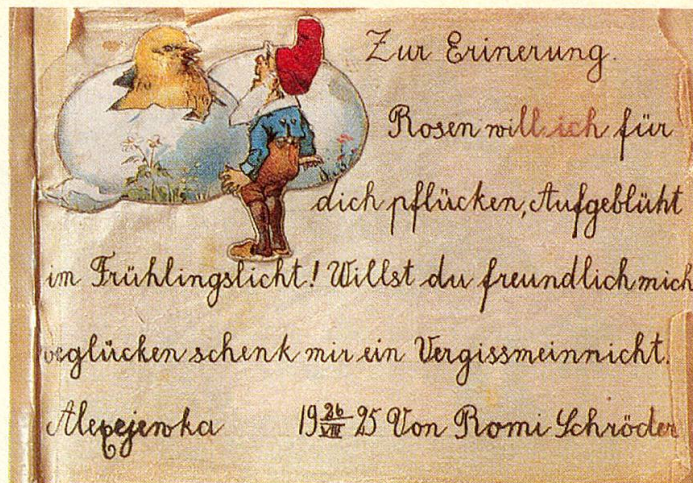 Zur Erinerung.
Rosen will ich für
dich pflücken, Aufgeblüht
im Frühlingslicht! Willst du freundlich mich
beglücken schenk mir ein Vergissmeinnicht.
Alexejewka 19 26/VIII 25 Von Romi Schröder